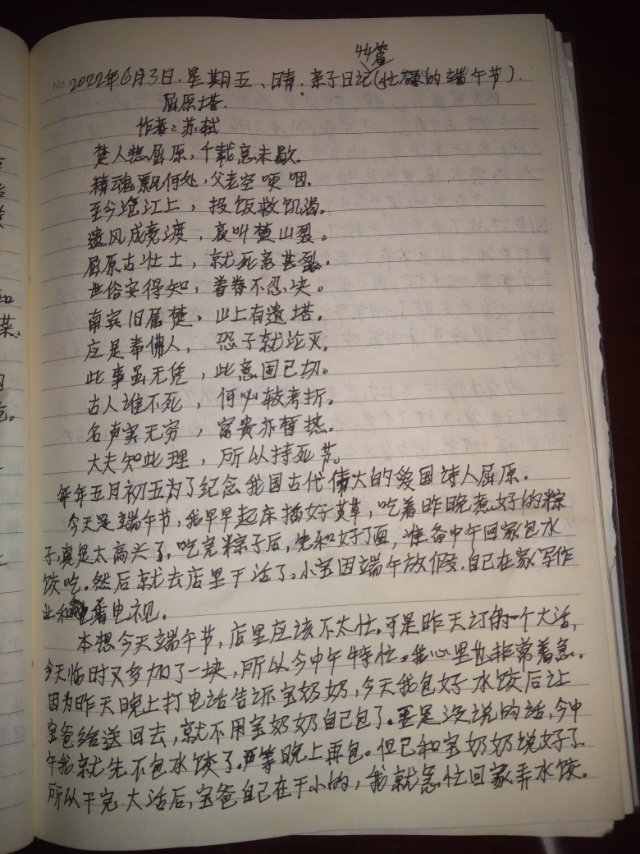 44篇
No. 2022年6月3日.星期五、晴:亲子日记(忙碌的端午节).
屈原塔.
作者:苏轼
楚人悲屈原,千载意未歇.
精魂飘何处,父老空哽咽.
至今沧江上,投饭救饥渴。
遗风成竞渡,哀叫楚山裂。
屈原古壮士,就死意甚烈。
世俗安得知,眷眷不忍决。
南宾旧属楚,山上有遗塔。
应是奉佛人,恐子就沦灭。
此事虽无凭,此意固已切。
古人谁不死,何必较考折。
名声实无穷,富贵亦暂热。
大夫知此理,所以持死节。
年年五月初五为了纪念我国古代伟大的爱国诗人屈原.
今天是端午节,我早早起床插好艾草,吃着昨晚煮好的粽
子,真是太高兴了。吃完粽子后,先和好了面,准备中午回家包水
饺吃。然后就去店里干活了。小宝因端午放假,自己在家写作
业和看电视。
本想今天端午节,店里应该不太忙。可是昨天订的一个大活,
今天临时又多加了一块,所以今中午特忙。我心里也非常着急。
因为昨天晚上打电话告诉宝奶奶,今天我包好水饺后让
宝爸给送回去,就不用宝奶奶自己包了。要是没说的话,今中
午我就先不包水饺了。等晚上再包。但已和宝奶奶说好了.
所以干完大活后,宝爸自己在干小的,我就急忙回家弄水饺。